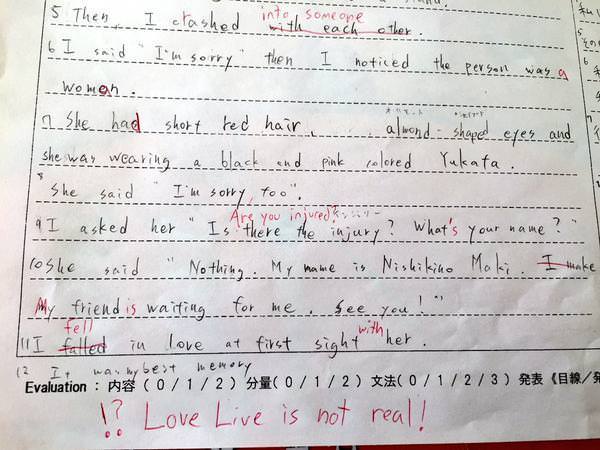 into someone
5 Then, I crashed with each other.
6 I said "I'm sorry" then I noticed the person was a
woman.
7 She had short red hair, ..... almond-shaped eyes and
she was wearing a black and pink colored Yukata.
8 She said "I'm sorry, too".
Are you injured?
9 I asked her "Is there the injury? What's your name?"
10 She said "Nothing. My name is Nishikino Maki. I make
My friend is waiting for me. See you!"
fell with
11 I falled in love at first sight her.
12 It was my best memory
Evaluation : 内容 ( 0 / 1 / 2 ) 分量( 0 / 1 / 2 ) 文法( 0 / 1 / 2 / 3 ) 発表《目線/発
!? Love Live is not real!